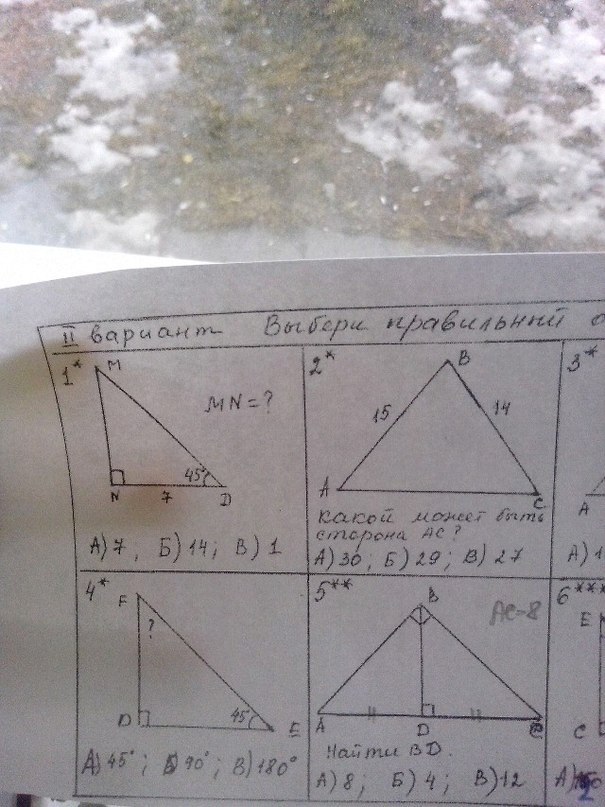 II вариант Выбери правильный
1*
M
MN = ?
45°
N
7
D
А) 7, Б) 14; В) 1
2*
B
15
14
A
C
Какой может быть
сторона АС?
А) 30, Б) 29; В) 27
3*
A
А) 1
4*
F
?
D
45°
E
А) 45°; Б) 90°; В) 180°
5**
B
AC=8
A
D
C
Найти BD.
А) 8; Б) 4; В) 12
6***
E
C
А)